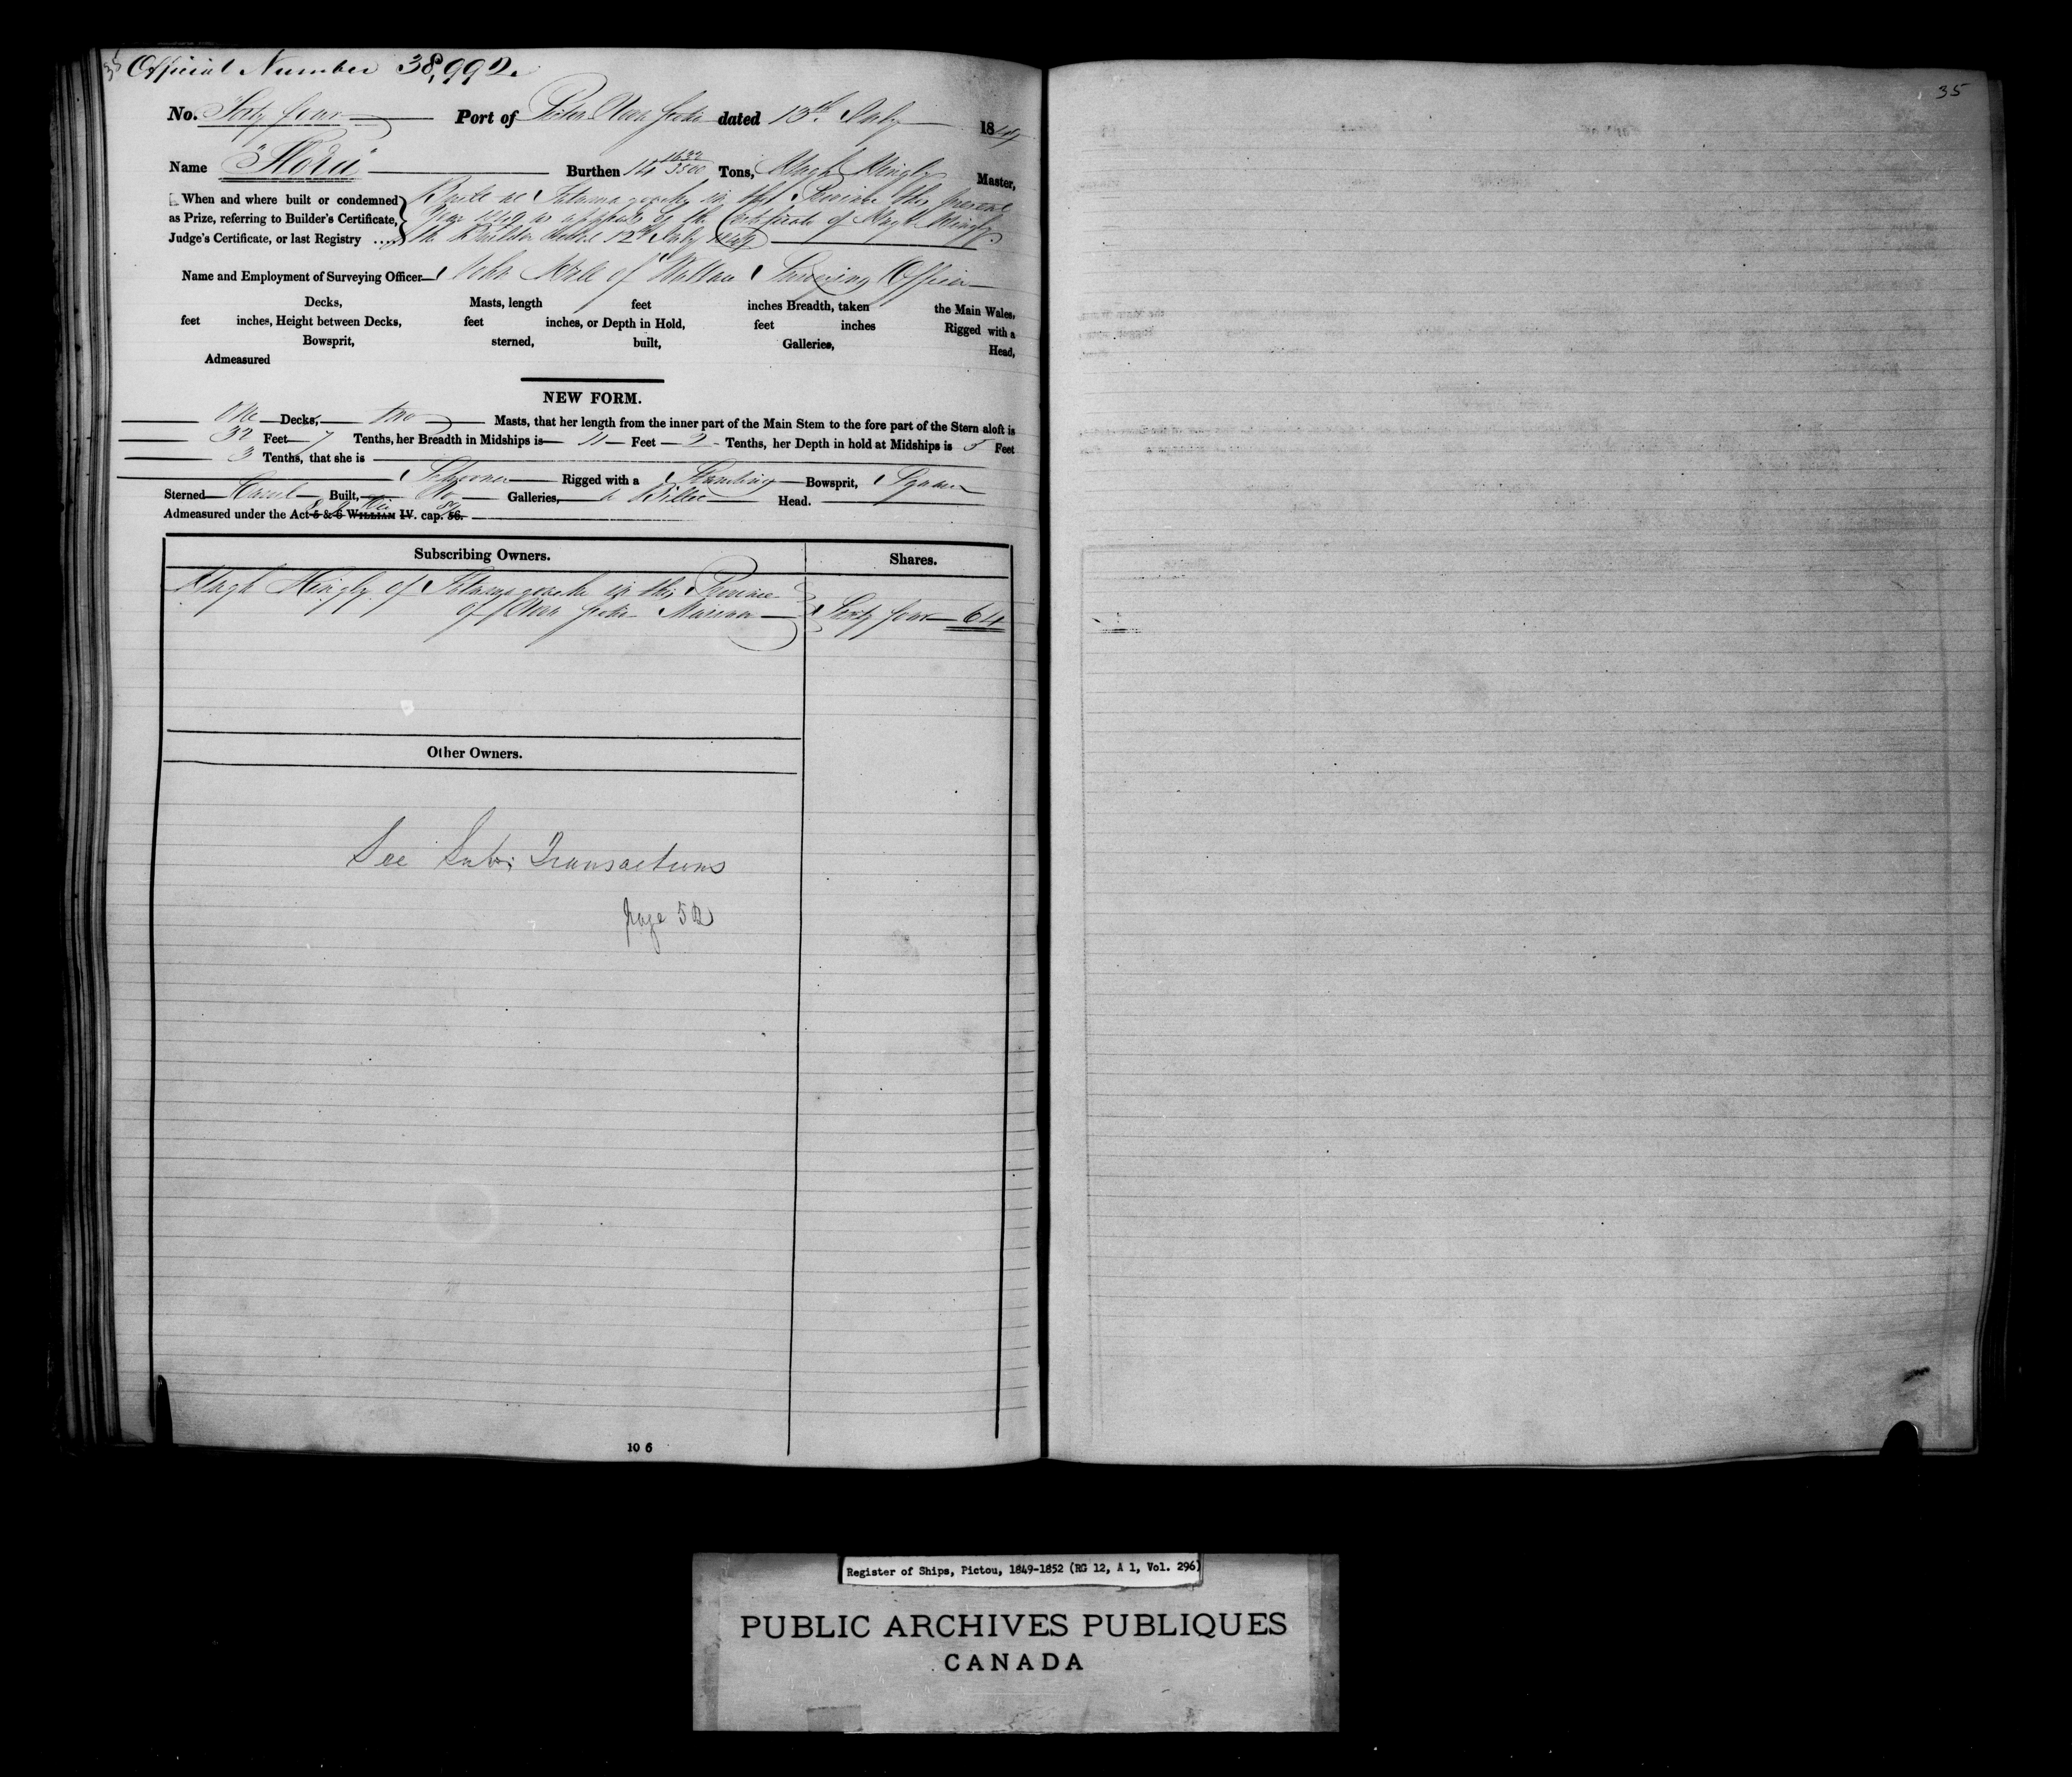 35
Official Number 38,992.
No. Forty four Port of Pictou Nova Scotia dated 13th July 1849
Name "Flora" Burthen 14 1632/3500 Tons, Hugh Mingly Master,
When and where built or condemned as Prize, referring to Builder's Certificate, Judge's Certificate, or last Registry
Built at Tatamagouche in this Province this present
Year 1849 as appears by the Certificate of Hugh Mingly
the Builder dated 12th July 1849
Name and Employment of Surveying Officer John of Wallace Surveying Officer
Decks, Masts, length feet inches Breadth, taken the Main Wales,
feet inches, Height between Decks, feet inches, or Depth in Hold, feet inches Rigged with a
Bowsprit, sterned, built, Galleries, Head,
Admeasured
NEW FORM.
One Decks, two Masts, that her length from the inner part of the Main Stem to the fore part of the Stern aloft is
32 Feet 7 Tenths, her Breadth in Midships is 11 Feet 2 Tenths, her Depth in hold at Midships is 5 Feet
3 Tenths, that she is
Schooner Rigged with a Standing Bowsprit, Square
Sterned Carvel Built, No Galleries, a Billet Head.
Admeasured under the Act 5 & 6 WILLIAM IV. cap. 56.
Subscribing Owners. Shares.
Hugh Mingly of Tatamagouche in this Province
of Nova Scotia Mariner Sixty four 64
Other Owners.
See Subs. Transactions
page 52
10 6
35
Register of Ships, Pictou, 1849-1852 (RG 12, A 1, Vol. 296)
PUBLIC ARCHIVES PUBLIQUES
CANADA